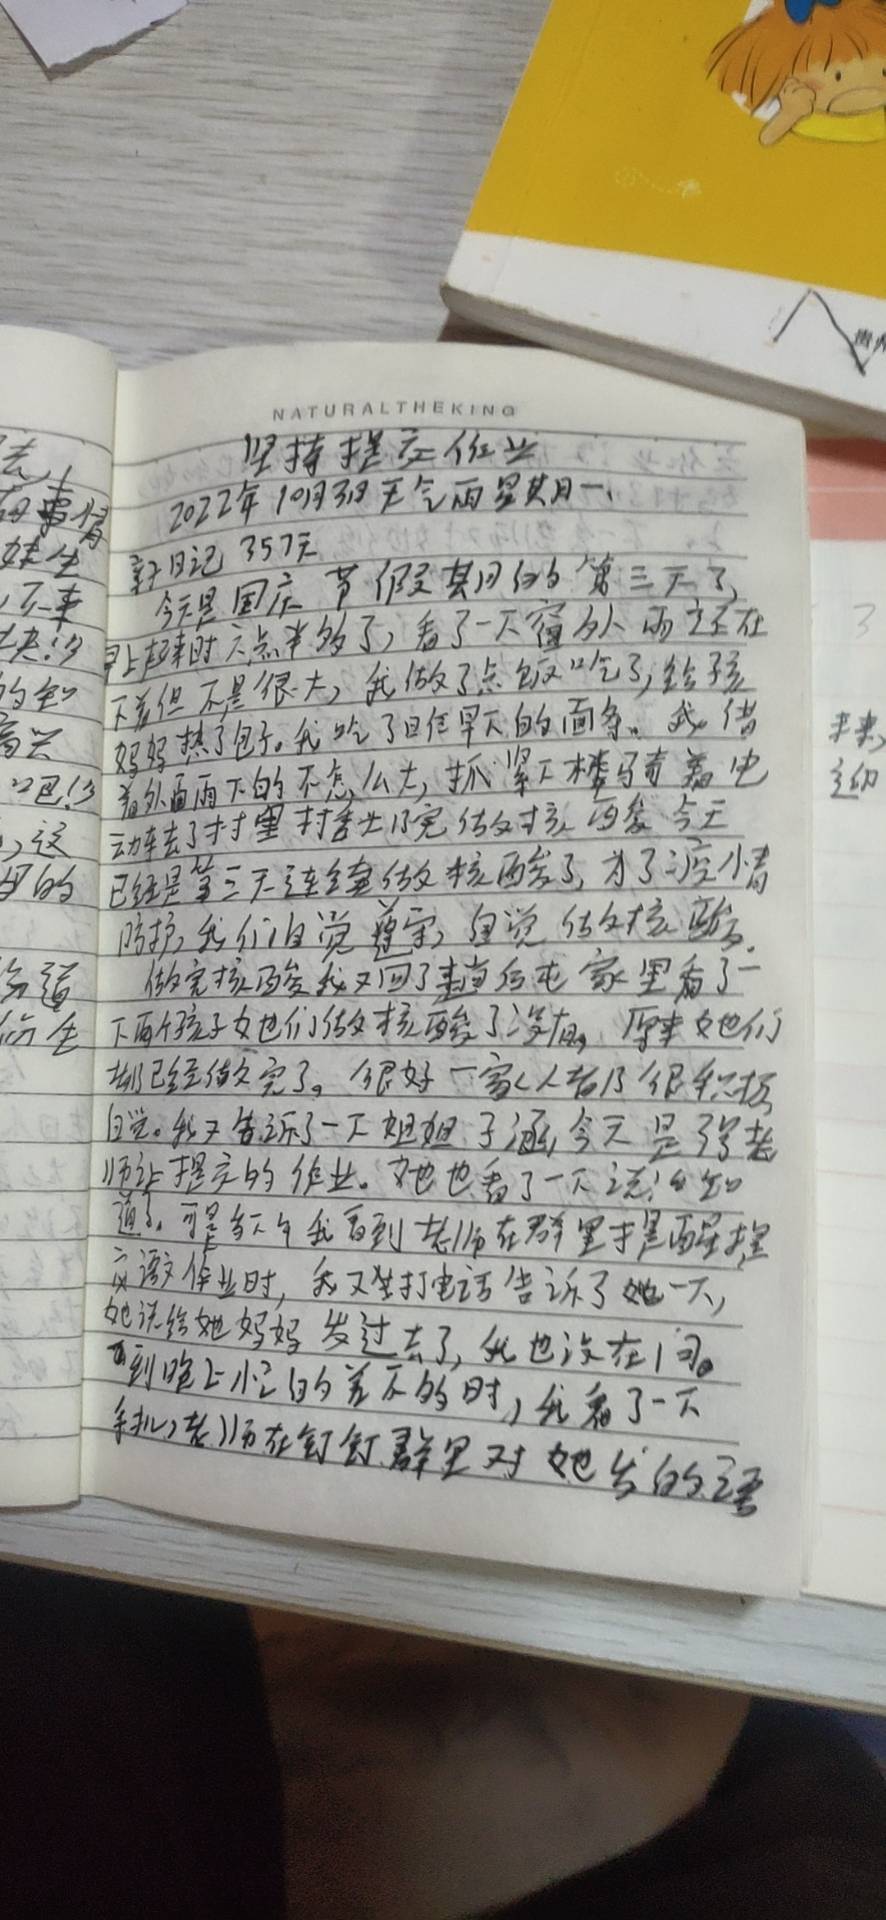 NATURALTHEKING
坚持提交作业
2022年10月3日天气雨星期一
亲子日记 357天
今天是国庆节假期的第三天了,
早上起来时六点半多了,看了一下窗外雨还在
下着但不是很大,我做了点饭吃了,给孩
妈妈热了包子。我吃了昨天的面条。我借
着外面雨下的不怎么大,抓紧下楼骑着电
动车去了村里村委大院做核酸今天
已经是第三天连续做核酸了,为了疫情
防护,我们自觉遵守,自觉做核酸。
做完核酸我又回了后屯家里看了一
下两个孩子她们做核酸了没有。原来她们
都已经做完了。很好一家人都很积极
自觉。我又告诉了一下姐姐子涵今天是3号老
师让提交的作业。她也看了一下说:知
道了。可是当下午我看到老师在群里提醒提
交语文作业时,我又打电话告诉了她一下,
她说给她妈妈发过去了,我也没在问。
到晚上的差不多时,我看了一下
手机,老师在钉钉群里对她发的语
去,
事情
妹生
不来
的知
高兴
吧!
,这
里的
道
3
来来,